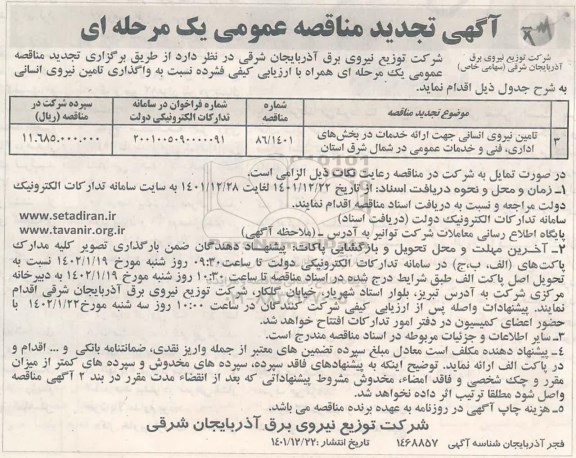 آگهی تجدید مناقصه عمومی یک مرحله ای
شرکت توزیع نیروی برق
آذربایجان شرقی (سهامی خاص)
شرکت توزیع نیروی برق آذربایجان شرقی در نظر دارد از طریق برگزاری تجدید مناقصه
عمومی یک مرحله ای همراه با ارزیابی کیفی فشرده نسبت به واگذاری تامین نیروی انسانی
به شرح جدول ذیل اقدام نماید.
موضوع تجدید مناقصه
شماره مناقصه
شماره فراخوان در سامانه تدارکات الکترونیکی دولت
سپرده شرکت در مناقصه (ریال)
۳
تامین نیروی انسانی جهت ارائه خدمات در بخش‌های
اداری، فنی و خدمات عمومی در شمال شرق استان
۸۶/۱۴۰۱
۲۰۰۱۰۰۵۰۹۰۰۰۰۰۹۱
۱۱.۶۸۵.۰۰۰.۰۰۰
در صورت تمایل به شرکت در مناقصه رعایت نکات ذیل الزامی است.
۱- زمان و محل و نحوه دریافت اسناد: از تاریخ ۱۴۰۱/۱۲/۲۲ لغایت ۱۴۰۱/۱۲/۲۸ به سایت سامانه تدارکات الکترونیک
دولت مراجعه و نسبت به دریافت اسناد مناقصه اقدام نمایند.
سامانه تدارکات الکترونیک دولت (دریافت اسناد) www.setadiran.ir
پایگاه اطلاع رسانی معاملات شرکت توانیر به آدرس - (ملاحظه آگهی) www.tavanir.org.ir
۲- آخرین مهلت و محل تحویل و بازگشایی پاکات: پیشنهاد دهندگان ضمن بارگذاری تصویر کلیه مدارک
پاکت‌های (الف، ب، ج) در سامانه تدارکات الکترونیکی دولت تا ساعت ۰۹:۳۰ روز شنبه مورخ ۱۴۰۲/۱/۱۹ نسبت به
تحویل اصل پاکت الف طبق شرایط درج شده در اسناد مناقصه تا ساعت ۱۰:۳۰ روز شنبه مورخ ۱۴۰۲/۱/۱۹ به دبیرخانه
مرکزی شرکت به آدرس تبریز، بلوار استاد شهریار، خیابان گلکار، شرکت توزیع نیروی برق آذربایجان شرقی اقدام
نمایند. پیشنهادات واصله پس از ارزیابی کیفی شرکت کنندگان در ساعت ۱۰:۰۰ روز سه شنبه مورخ ۱۴۰۲/۱/۲۲ با
حضور اعضای کمیسیون در دفتر امور تدارکات افتتاح خواهد شد.
۳- سایر اطلاعات و جزئیات مربوطه در اسناد مناقصه مندرج است.
۴- پیشنهاد دهنده مکلف است معادل مبلغ سپرده تضمین های معتبر از جمله واریز نقدی، ضمانتنامه بانکی و ... اقدام و
در پاکت الف ارائه نماید. توضیح اینکه به پیشنهادهای فاقد سپرده، سپرده های مخدوش و سپرده های کمتر از میزان
مقرر و چک شخصی و فاقد امضاء، مخدوش مشروط پیشنهاداتی که بعد از انقضاء مدت مقرر در بند ۲ آگهی مناقصه
واصل شود مطلقا ترتیب اثر داده نخواهد شد.
۵- هزینه چاپ آگهی در روزنامه به عهده برنده مناقصه می باشد.
شرکت توزیع نیروی برق آذربایجان شرقی
فجر آذربایجان شناسه آگهی ۱۴۶۸۸۵۷ تاریخ انتشار: ۱۴۰۱/۱۲/۲۲